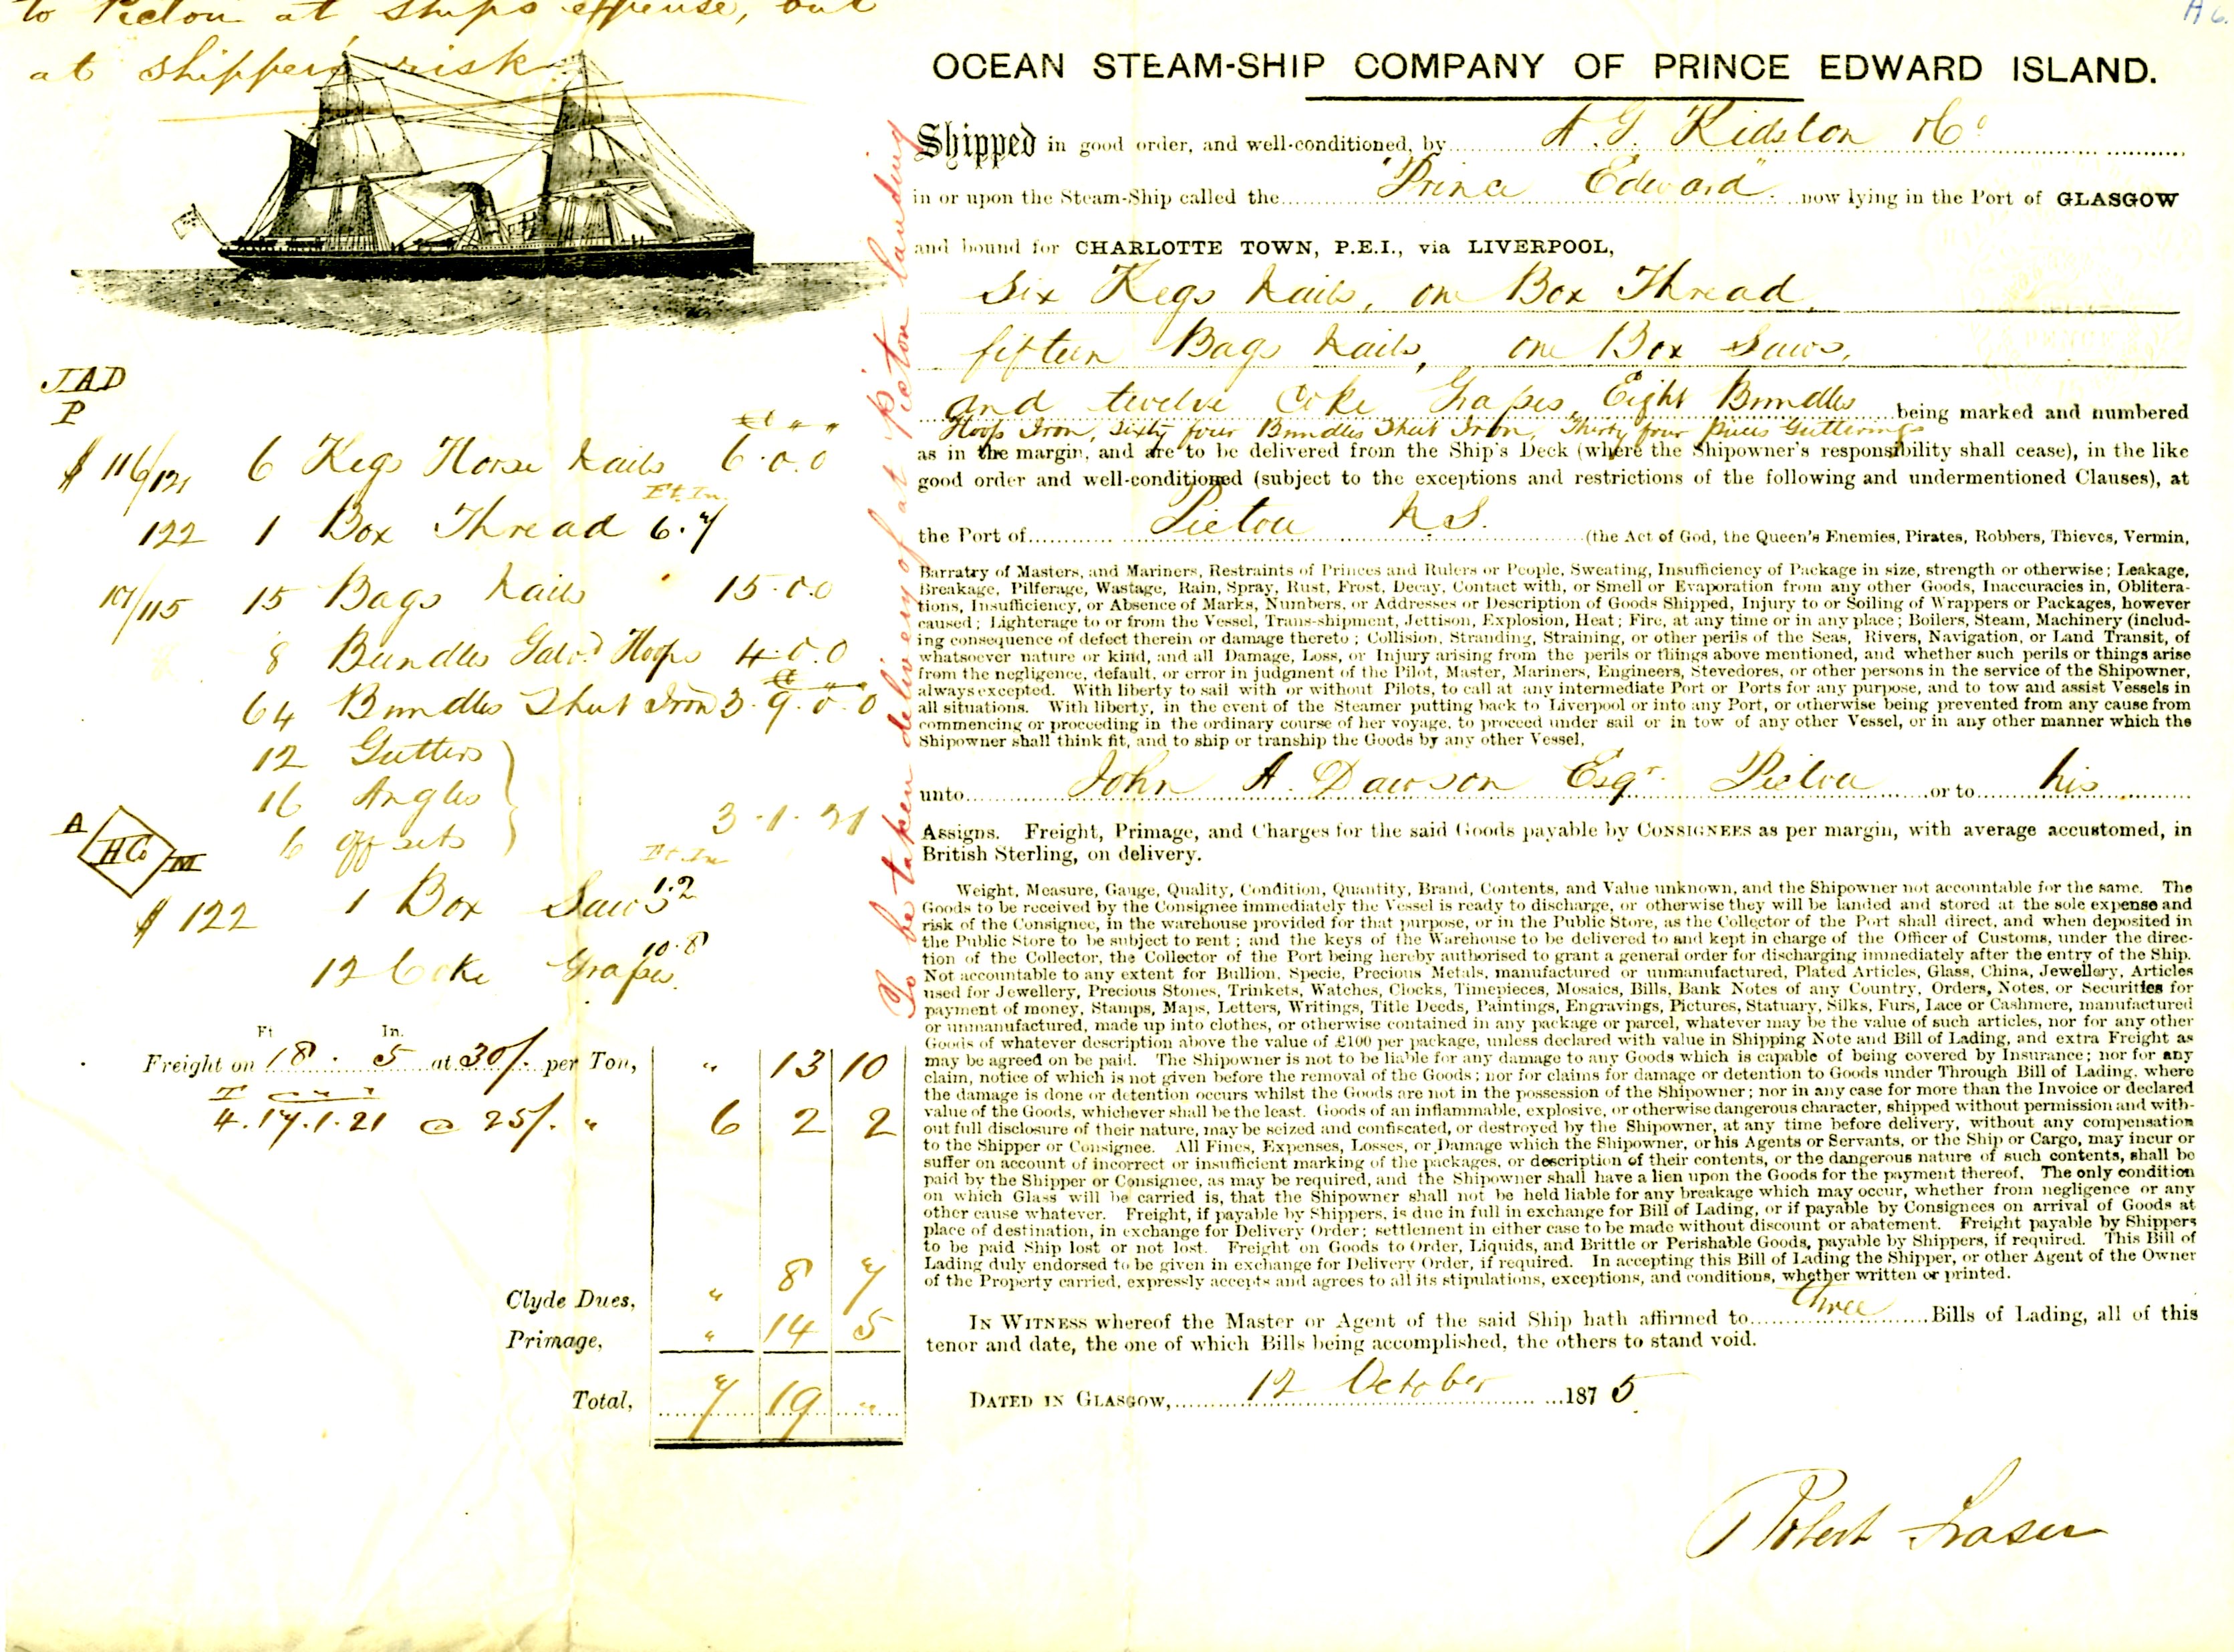 to Pictou at ships expense, but
at shippers risk
A 6.
OCEAN STEAM-SHIP COMPANY OF PRINCE EDWARD ISLAND.
Shipped in good order, and well-conditioned, by A. G. Kidston & Co
in or upon the Steam-Ship called the "Prince Edward" now lying in the Port of GLASGOW
and bound for CHARLOTTE TOWN, P.E.I., via LIVERPOOL,
Six Kegs Nails, one Box Thread,
fifteen Bags Nails, one Box Saws,
and twelve Coke Grapes, Eight Bundles being marked and numbered
Hoops Iron, Sixty four Bundles Sheet Iron, Thirty four pieces Gutterings
as in the margin, and are to be delivered from the Ship's Deck (where the Shipowner's responsibility shall cease), in the like
good order and well-conditioned (subject to the exceptions and restrictions of the following and undermentioned Clauses), at
the Port of Pictou N.S. (the Act of God, the Queen's Enemies, Pirates, Robbers, Thieves, Vermin,
Barratry of Masters, and Mariners, Restraints of Princes and Rulers or People, Sweating, Insufficiency of Package in size, strength or otherwise; Leakage,
Breakage, Pilferage, Wastage, Rain, Spray, Rust, Frost, Decay, Contact with, or Smell or Evaporation from any other Goods, Inaccuracies in, Oblitera-
tions, Insufficiency, or Absence of Marks, Numbers, or Addresses or Description of Goods Shipped, Injury to or Soiling of Wrappers or Packages, however
caused; Lighterage to or from the Vessel, Trans-shipment, Jettison, Explosion, Heat; Fire, at any time or in any place; Boilers, Steam, Machinery (includ-
ing consequence of defect therein or damage thereto; Collision, Stranding, Straining, or other perils of the Seas, Rivers, Navigation, or Land Transit, of
whatsoever nature or kind, and all Damage, Loss, or Injury arising from the perils or things above mentioned, and whether such perils or things arise
from the negligence, default, or error in judgment of the Pilot, Master, Mariners, Engineers, Stevedores, or other persons in the service of the Shipowner,
always excepted. With liberty to sail with or without Pilots, to call at any intermediate Port or Ports for any purpose, and to tow and assist Vessels in
all situations. With liberty, in the event of the Steamer putting back to Liverpool or into any Port, or otherwise being prevented from any cause from
commencing or proceeding in the ordinary course of her voyage, to proceed under sail or in tow of any other Vessel, or in any other manner which the
Shipowner shall think fit, and to ship or tranship the Goods by any other Vessel,
unto John A. Dawson Esqr. Pictou or to his
Assigns. Freight, Primage, and Charges for the said Goods payable by CONSIGNEES as per margin, with average accustomed, in
British Sterling, on delivery.
Weight, Measure, Gauge, Quality, Condition, Quantity, Brand, Contents, and Value unknown, and the Shipowner not accountable for the same. The
Goods to be received by the Consignee immediately the Vessel is ready to discharge, or otherwise they will be landed and stored at the sole expense and
risk of the Consignee, in the warehouse provided for that purpose, or in the Public Store, as the Collector of the Port shall direct, and when deposited in
the Public Store to be subject to rent; and the keys of the Warehouse to be delivered to and kept in charge of the Officer of Customs, under the direc-
tion of the Collector, the Collector of the Port being hereby authorised to grant a general order for discharging immediately after the entry of the Ship.
Not accountable to any extent for Bullion, Specie, Precious Metals, manufactured or unmanufactured, Plated Articles, Glass, China, Jewellery, Articles
used for Jewellery, Precious Stones, Trinkets, Watches, Clocks, Timepieces, Mosaics, Bills, Bank Notes of any Country, Orders, Notes, or Securities for
payment of money, Stamps, Maps, Letters, Writings, Title Deeds, Paintings, Engravings, Pictures, Statuary, Silks, Furs, Lace or Cashmere, manufactured
or unmanufactured, made up into clothes, or otherwise contained in any package or parcel, whatever may be the value of such articles, nor for any other
Goods of whatever description above the value of £100 per package, unless declared with value in Shipping Note and Bill of Lading, and extra Freight as
may be agreed on be paid. The Shipowner is not to be liable for any damage to any Goods which is capable of being covered by Insurance; nor for any
claim, notice of which is not given before the removal of the Goods; nor for claims for damage or detention to Goods under Through Bill of Lading, where
the damage is done or detention occurs whilst the Goods are not in the possession of the Shipowner; nor in any case for more than the Invoice or declared
value of the Goods, whichever shall be the least. Goods of an inflammable, explosive, or otherwise dangerous character, shipped without permission and with-
out full disclosure of their nature, may be seized and confiscated, or destroyed by the Shipowner, at any time before delivery, without any compensation
to the Shipper or Consignee. All Fines, Expenses, Losses, or Damage which the Shipowner, or his Agents or Servants, or the Ship or Cargo, may incur or
suffer on account of incorrect or insufficient marking of the packages, or description of their contents, or the dangerous nature of such contents, shall be
paid by the Shipper or Consignee, as may be required, and the Shipowner shall have a lien upon the Goods for the payment thereof. The only condition
on which Glass will be carried is, that the Shipowner shall not be held liable for any breakage which may occur, whether from negligence or any
other cause whatever. Freight, if payable by Shippers, is due in full in exchange for Bill of Lading, or if payable by Consignees on arrival of Goods at
place of destination, in exchange for Delivery Order; settlement in either case to be made without discount or abatement. Freight payable by Shippers
to be paid Ship lost or not lost. Freight on Goods to Order, Liquids, and Brittle or Perishable Goods, payable by Shippers, if required. This Bill of
Lading duly endorsed to be given in exchange for Delivery Order, if required. In accepting this Bill of Lading the Shipper, or other Agent of the Owner
of the Property carried, expressly accepts and agrees to all its stipulations, exceptions, and conditions, whether written or printed.
IN WITNESS whereof the Master or Agent of the said Ship hath affirmed to three Bills of Lading, all of this
tenor and date, the one of which Bills being accomplished, the others to stand void.
DATED IN GLASGOW, 12 October 1875
Robert Fraser
To be taken delivery of at Pictou landing
JAD
P
$ 116/121 6 Kegs Horse Nails 6.0.0
Ft. In.
122 1 Box Thread 6.7
101/115 15 Bags Nails 15.0.0
8 Bundles Galvd. Hoops 4.0.0
64 Bundles Sheet Iron 3.9.0.0
12 Gutters
16 Angles
6 off sets 3.1.21
A HCo M
Ft. In
$ 122 1 Box Saws 1.2
12 Coke Grapes 10.8
Ft In.
Freight on 18. 5 at 30/. per Ton, " 13 10
4.17.1.21 @ 25/. " 6 2 2
Clyde Dues, " 8 7
Primage, " 14 5
Total, 7 19 "